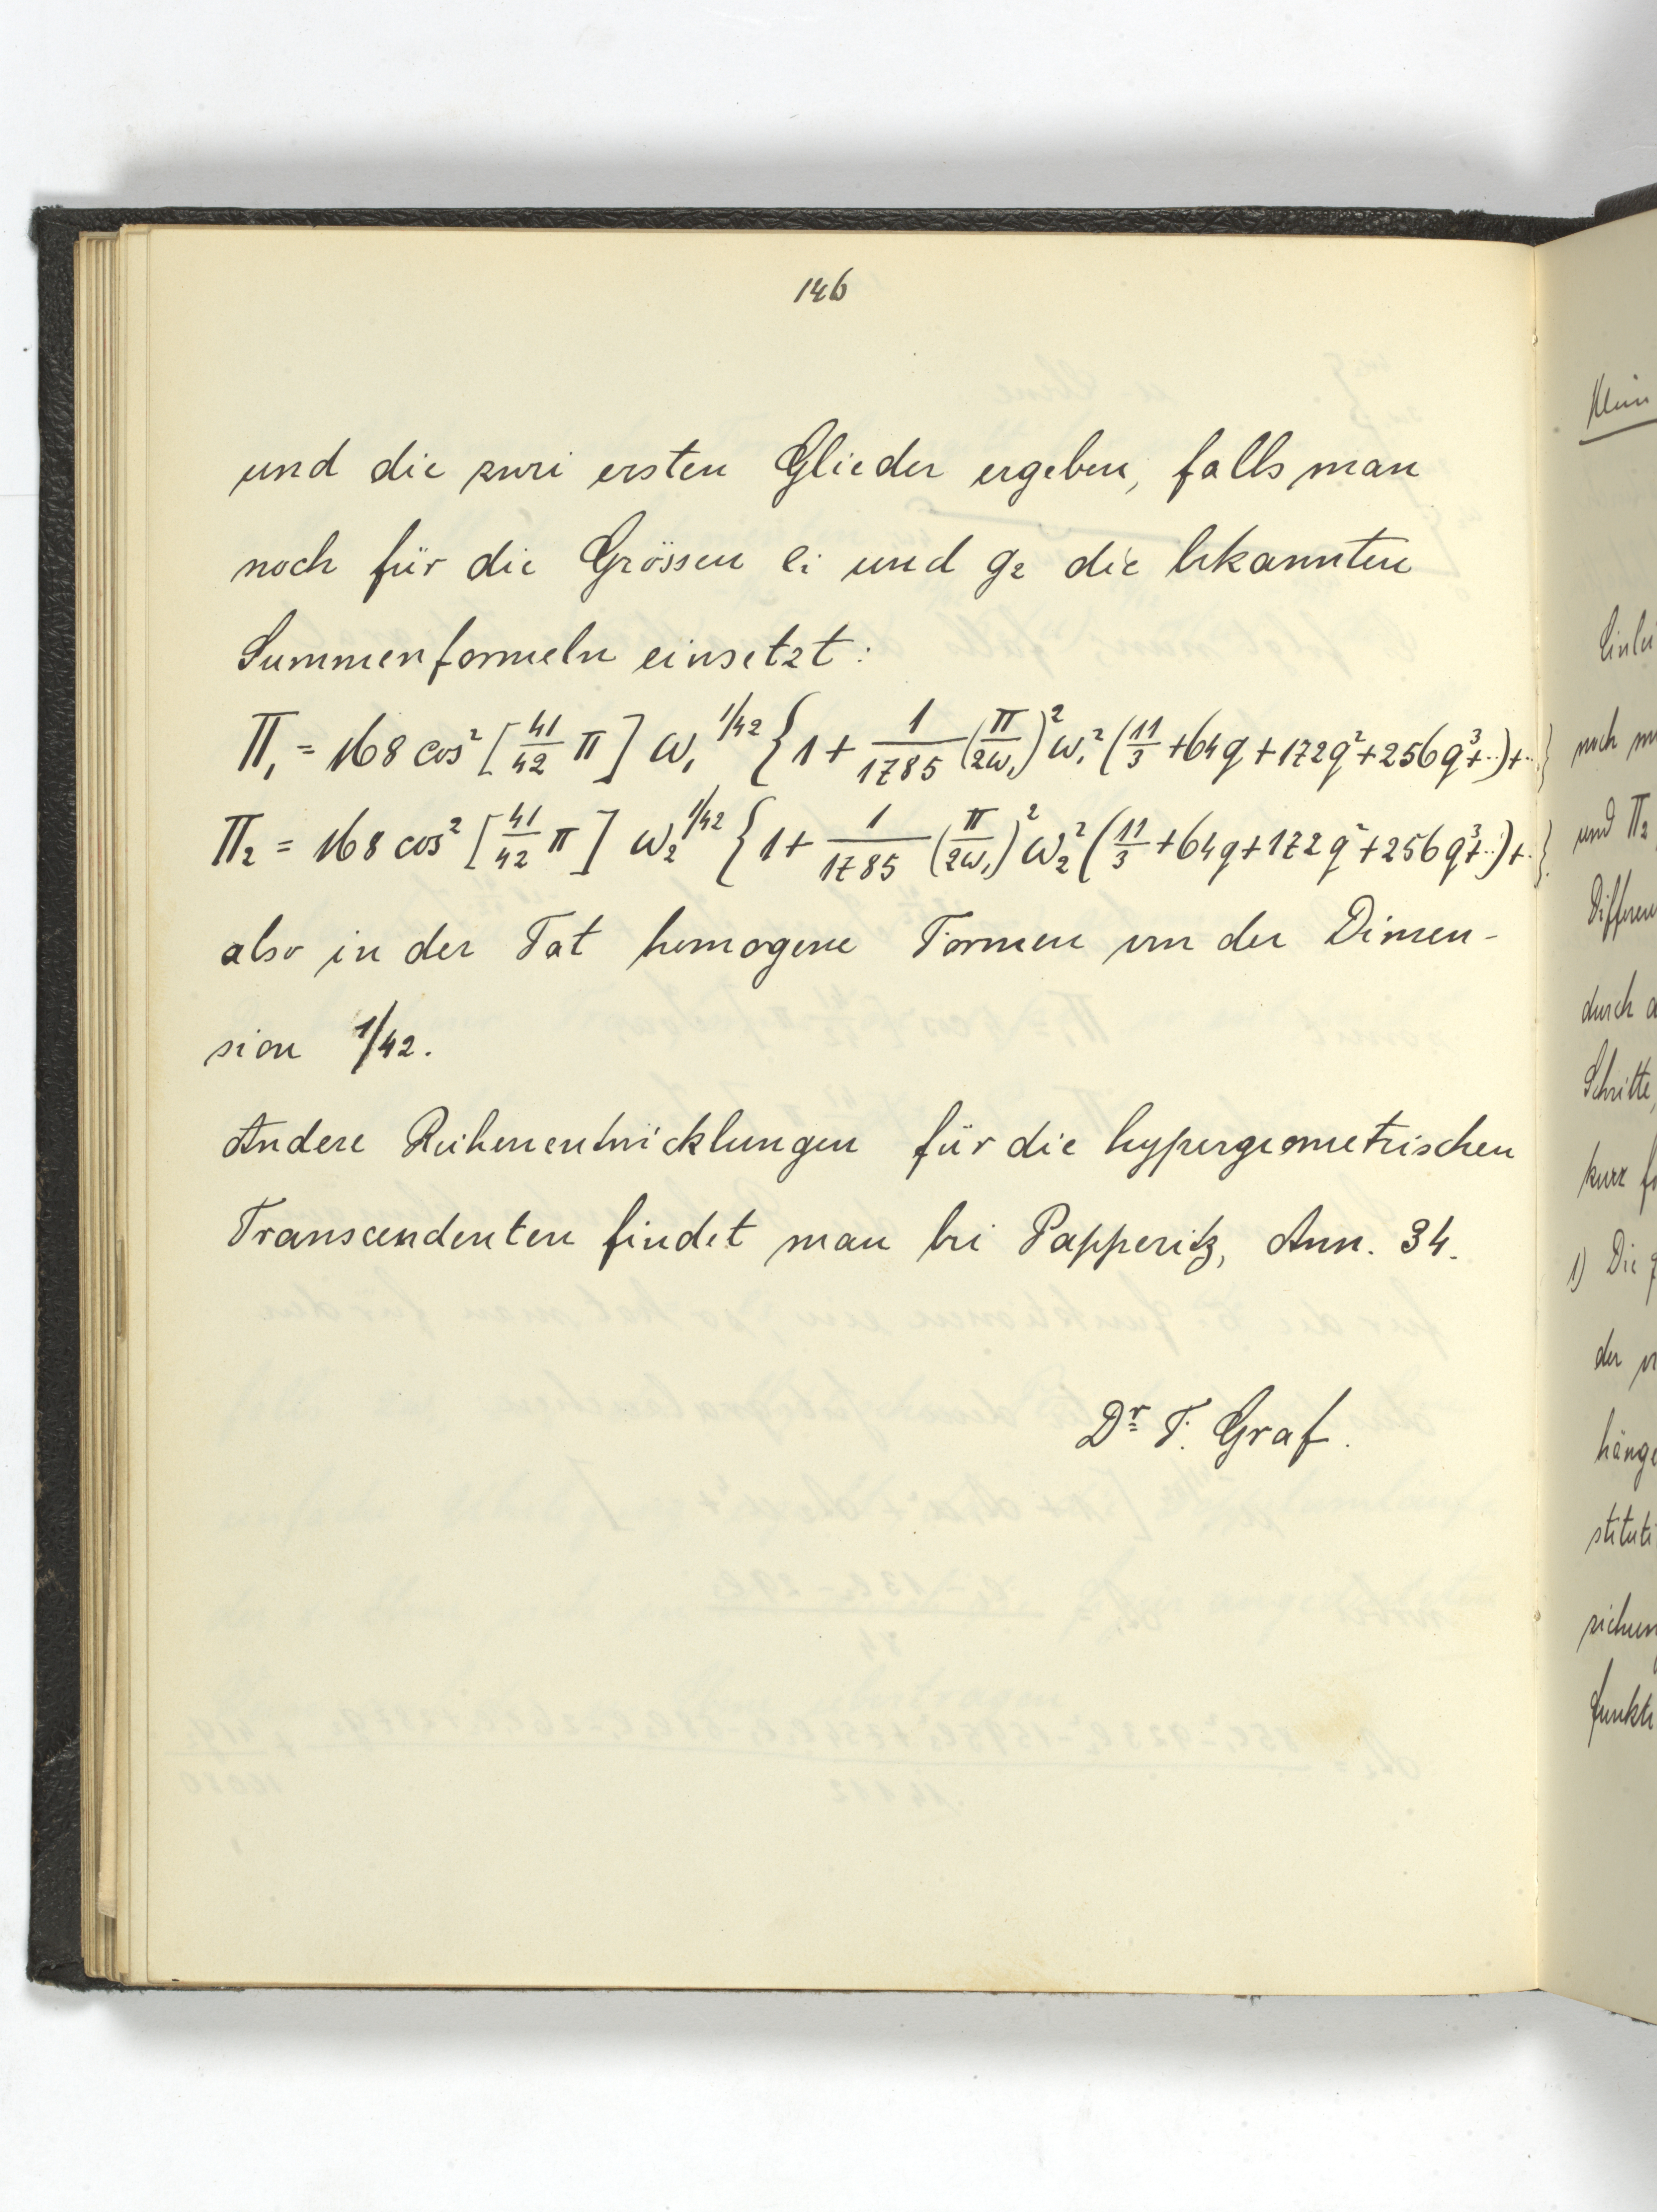 146
und die zwei ersten Glieder ergeben, falls man
noch für die Grössen ei und g₂ die bekannten
Summenformeln einsetzt:
Π₁ = 168 cos² [41/42 π] ω₁^1/42 {1 + 1/1785 (π/2ω₁)² ω₁² (11/3 + 64q + 172q² + 256q³+..)+..}
Π₂ = 168 cos² [41/42 π] ω₂^1/42 {1 + 1/1785 (π/2ω₁)² ω₂² (11/3 + 64q + 172q² + 256q³+..)+..}
also in der Tat homogene Formen von der Dimen-
sion 1/42.
Andere Reihenentwicklungen für die hypergeometrischen
Transcendenten findet man bei Papperitz, Ann. 34.
Dr F. Graf.
Klein
noch
und Π₂
durch
Schritte,
kurz
1) Die
der